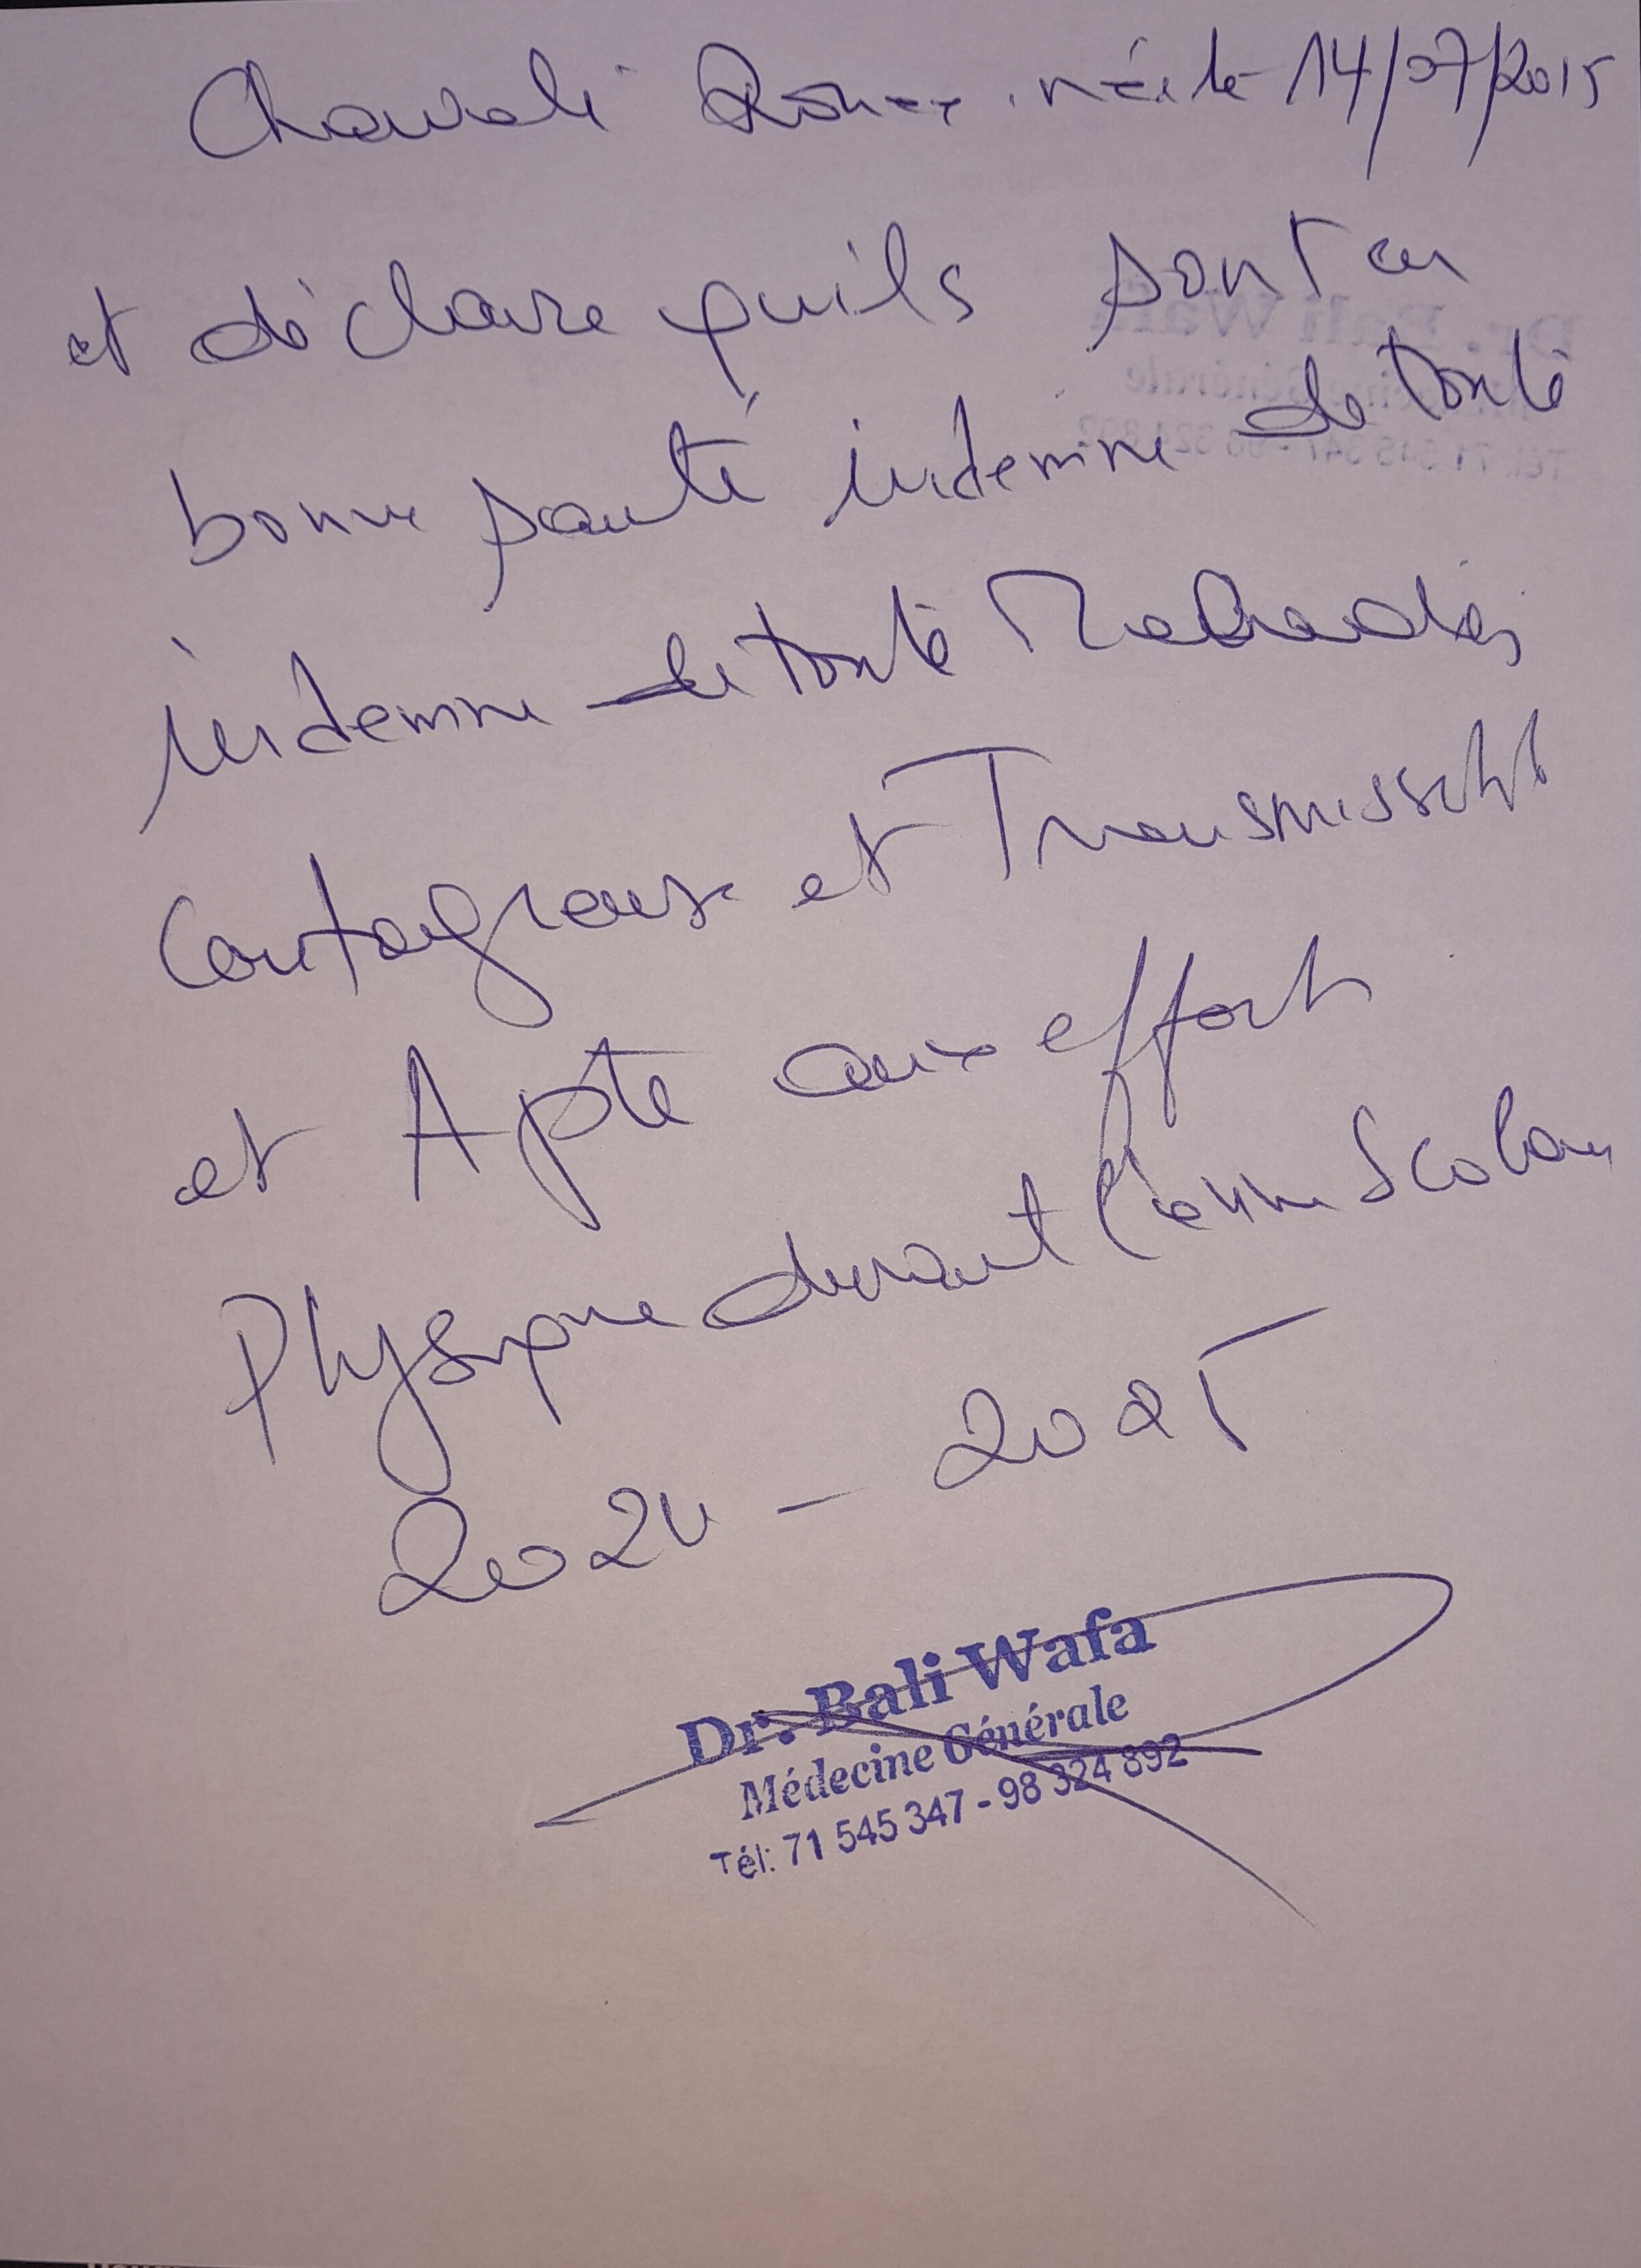 Chaouali née le 14/07/2015
et déclare qu'ils sont en
bonne santé indemne de toute
indemne de toute Maladies
Contagieuse et Transmissible
et Apte aux effort
Physique durant l'anné Scolaire
2024 - 2025
Dr. Bali Wafa
Médecine Générale
Tél: 71 545 347 - 98 324 892